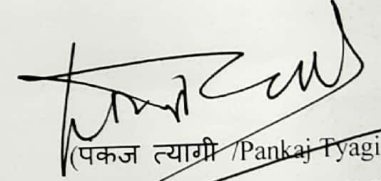 (पकज त्यागी /Pankaj Tyagi